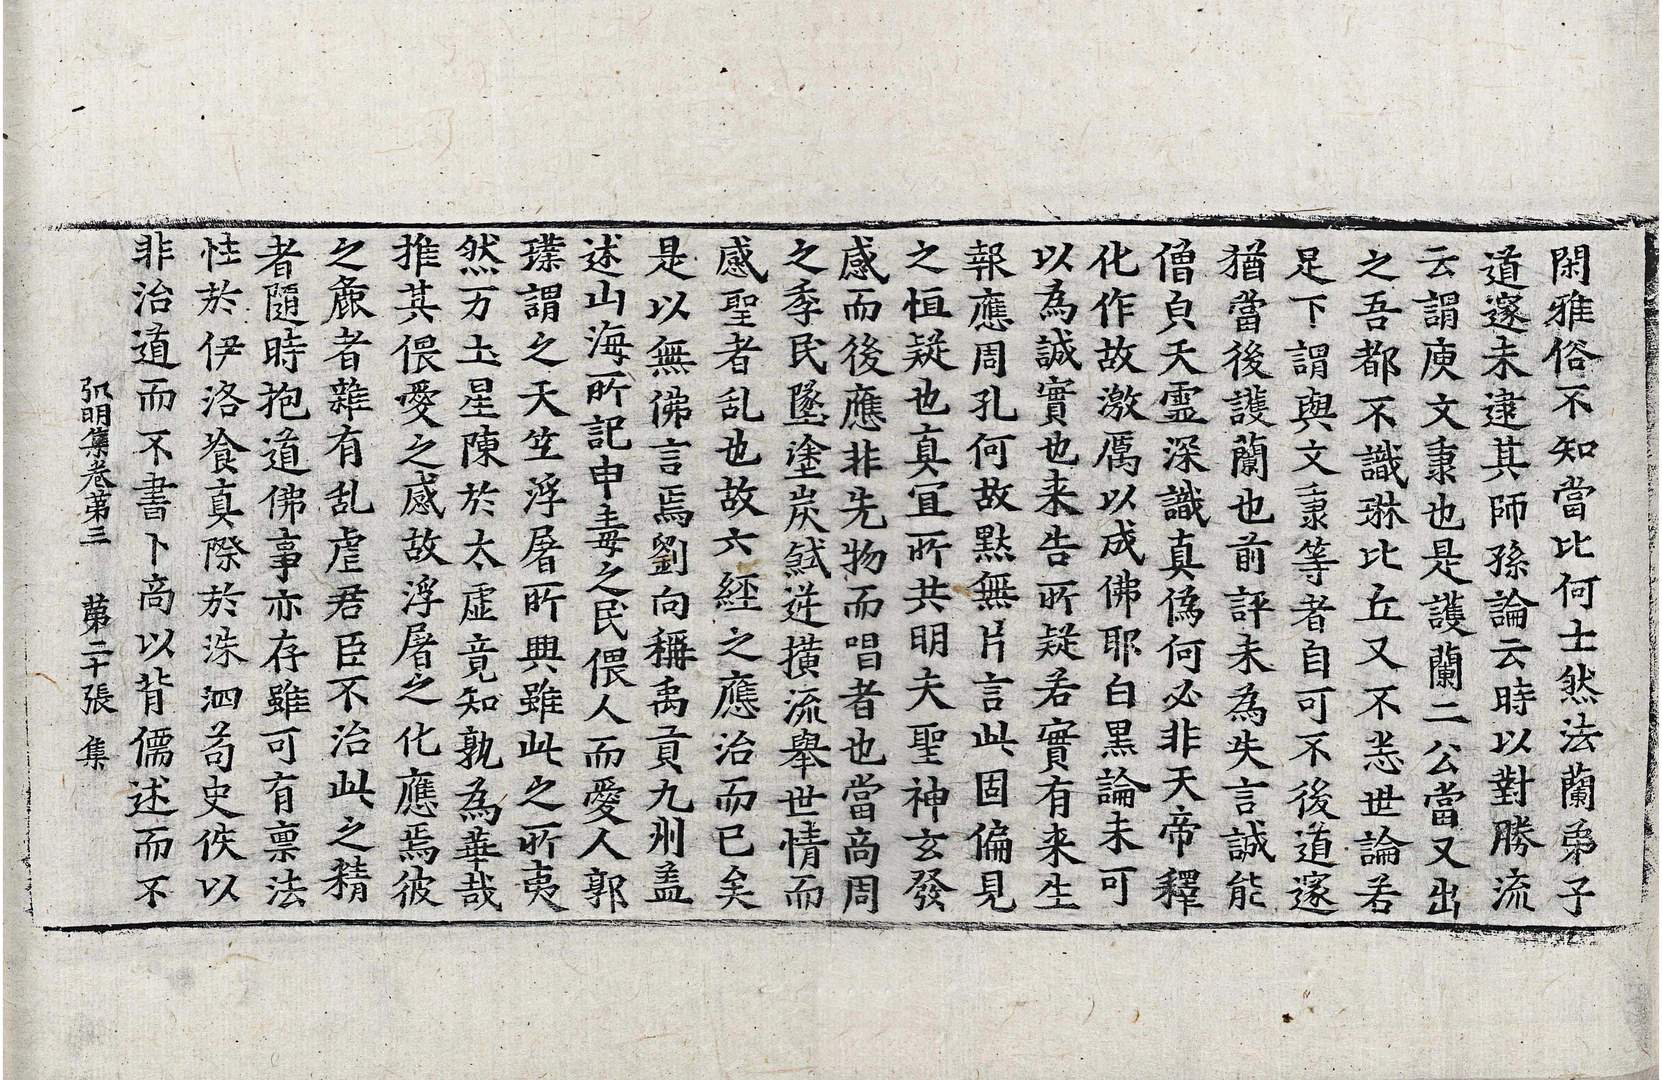 閑雅俗不知當比何士然法蘭弟子
道邃未逮其師孫論云時以對勝流
云謂庾文秉也是護蘭二公當又出
之吾都不識琳比丘又不悉世論若
足下謂與文秉等者自可不後道邃
猶當後護蘭也前評未為失言誠能
僧貞天靈深識真偽何必非天帝釋
化作故激厲以成佛耶白黑論未可
以為誠實也来告所疑若實有来生
報應周孔何故黙無片言此固偏見
之恒疑也真宜所共明夫聖神玄發
感而後應非先物而唱者也當商周
之季民墜塗炭弑逆横流舉世情而
感聖者乱也故六經之應治而已矣
是以無佛言焉劉向稱禹貢九州盖
述山海所記申毒之民偎人而愛人郭
璞謂之天竺浮屠所興雖此之所夷
然万土星陳於太虛竟知孰為華哉
推其偎愛之感故浮屠之化應焉彼
之麁者雜有乱虐君臣不治此之精
者隨時抱道佛事亦存雖可有禀法
性於伊洛飡真際於洙泗苟史佚以
非治道而不書卜商以背儒述而不
弘明集卷第三　第二十張　集